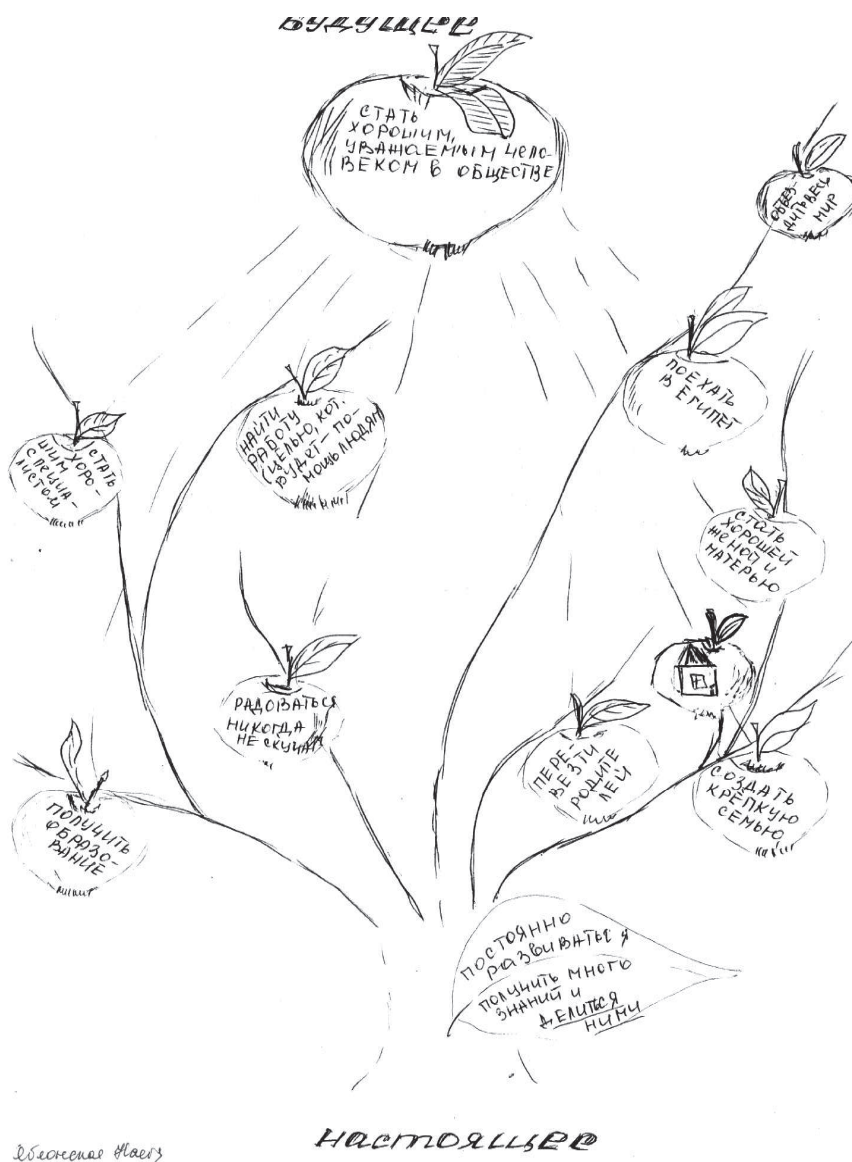 БУДУЩЕЕ
СТАТЬ
ХОРОШИМ,
УВАЖАЕМЫМ ЧЕЛО-
ВЕКОМ В ОБЩЕСТВЕ
ОБЪЕЗ-
ДИТЬ ВЕСЬ
МИР
ПОЕХАТЬ
В ЕГИПЕТ
НАЙТИ
РАБОТУ
С ЦЕЛЬЮ, КОТ.
БУДЕТ – ПО-
МОЩЬ ЛЮДЯМ
СТАТЬ
ХОРО-
ШИМ
СПЕЦИА-
ЛИСТОМ
СТАТЬ
ХОРОШЕЙ
ЖЕНОЙ И
МАТЕРЬЮ
РАДОВАТЬСЯ
НИКОГДА
НЕ СКУЧАТЬ
ПЕРЕ-
ВЕЗТИ
РОДИТЕ
ЛЕЙ
СОЗДАТЬ
КРЕПКУЮ
СЕМЬЮ
ПОЛУЧИТЬ
ОБРАЗО-
ВАНИЕ
ПОСТОЯННО
РАЗВИВАТЬСЯ
ПОЛУЧИТЬ МНОГО
ЗНАНИЙ И
ДЕЛИТЬСЯ
НИМИ
НАСТОЯЩЕЕ